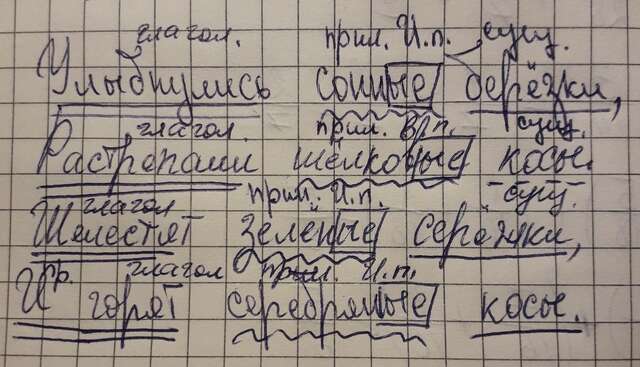 глагол. прил. И.п. сущ.
Улыбнулись сонные берёзки,
глагол. прил. В.п. сущ.
Растрепали шёлковые косы.
глагол прил. И.п. сущ.
Шелестят зелёные серёжки,
глагол прил. И.п.
И горят серебряные косы.